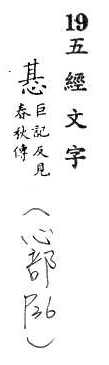 19五經文字
惎巨記反見
春秋傳
(心部P36)